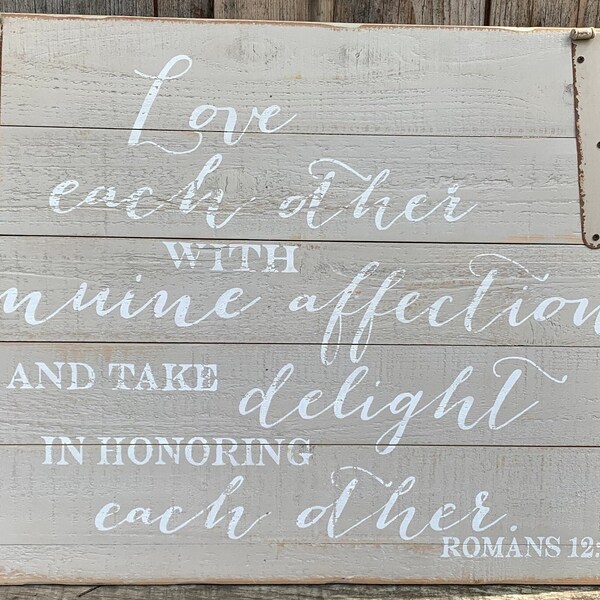 Love
each other
WITH
nuine affection
AND TAKE delight
IN HONORING
each other.
ROMANS 12: